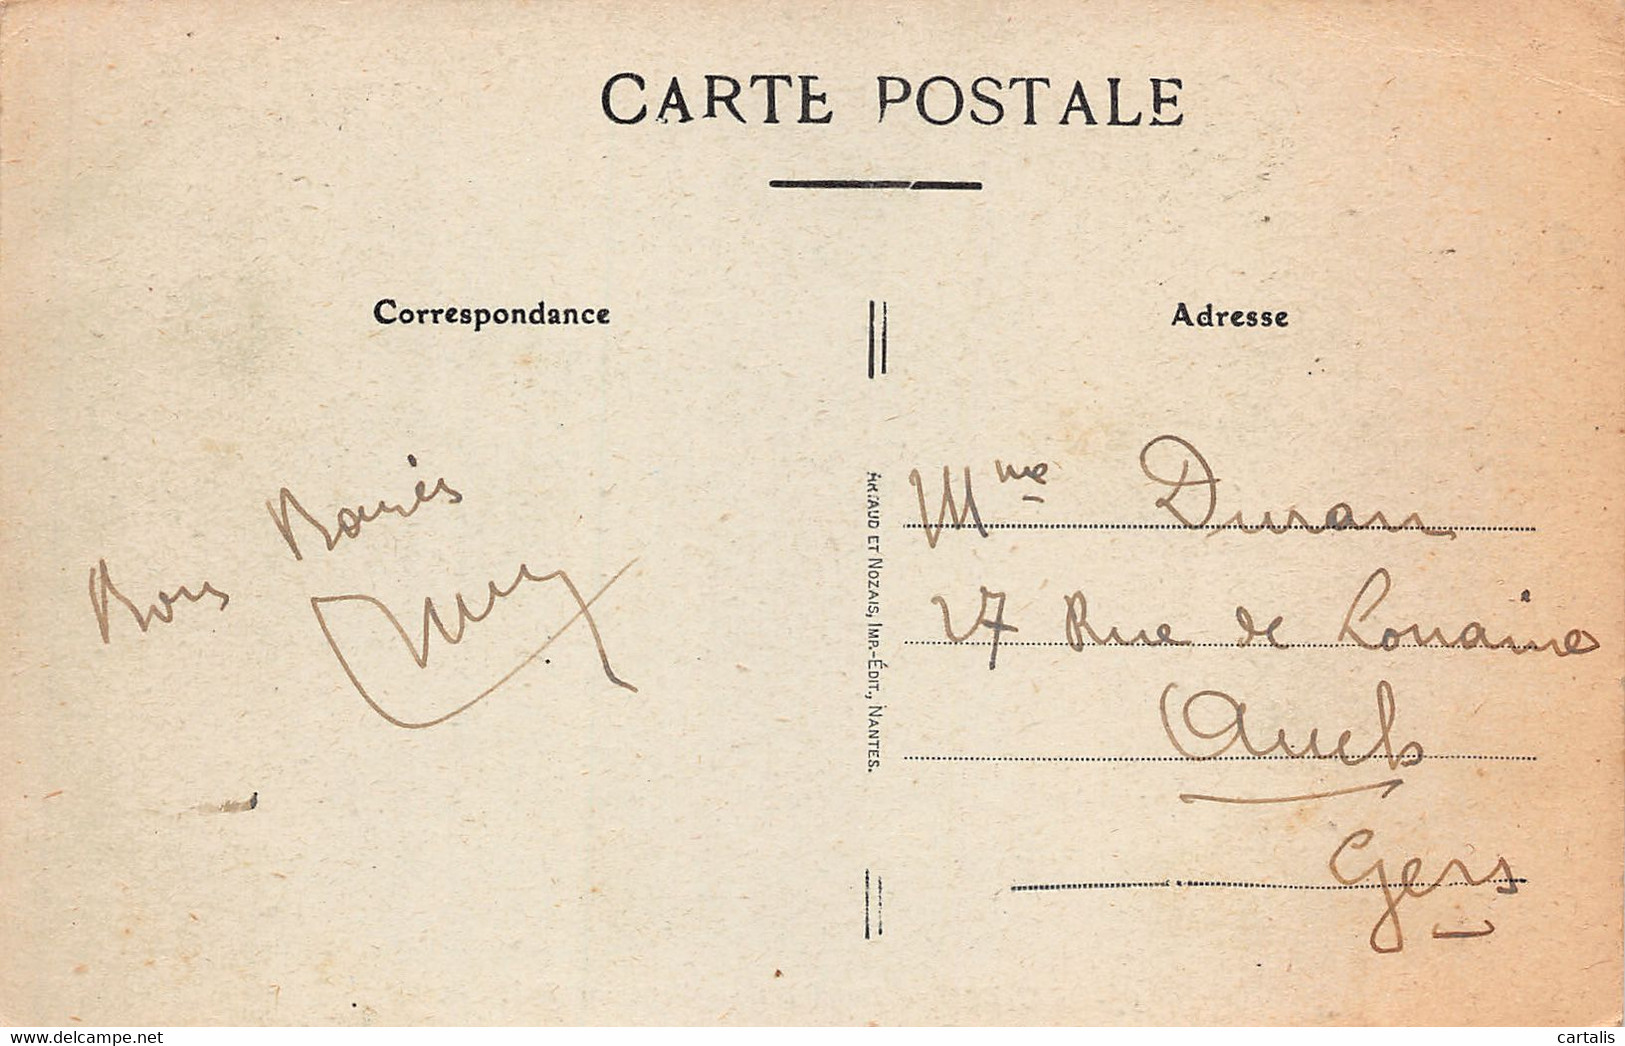 CARTE POSTALE
Correspondance
Adresse
Bons Baisers
ARTAUD ET NOZAIS, IMP.-ÉDIT., NANTES.
Mme Duran
27 Rue de Lorraine
Auch
Gers
www.delcampe.net
cartalis